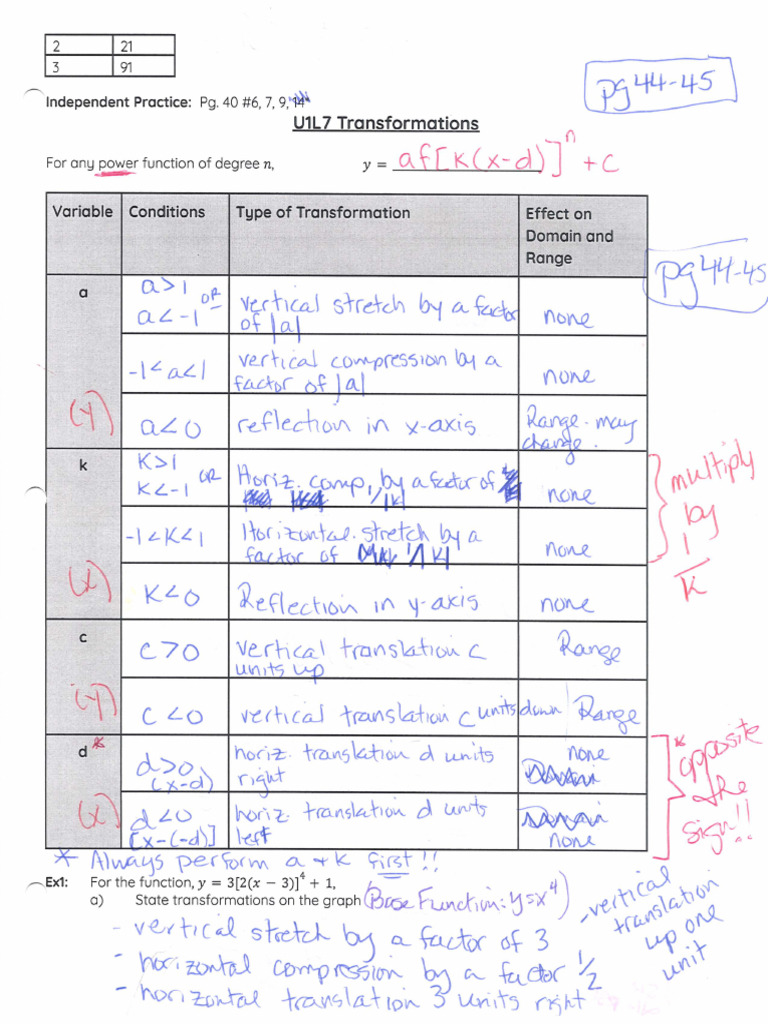 2 21
3 91
pg 44-45
Independent Practice: Pg. 40 #6, 7, 9, 14
U1L7 Transformations
For any power function of degree n, y = af[k(x-d)]ⁿ + c
Variable Conditions Type of Transformation Effect on Domain and Range
pg 44-45
a
(y)
a>1 OR
a<-1
vertical stretch by a factor
of |a|
none
-1<a<1
vertical compression by a
factor of |a|
none
a<0
reflection in x-axis
Range may
change.
k
(x)
K>1 OR
K<-1
Horiz. comp. by a factor of
1/|k|
none
-1<K<1
Horizontal stretch by a
factor of 1/|K|
none
K<0
Reflection in y-axis
none
multiply
by
1
K
c
(y)
C>0
vertical translation c
units up
Range
C<0
vertical translation c units down
Range
d*
(x)
d>0
(x-d)
horiz. translation d units
right
none
d<0
[x-(-d)]
horiz translation d units
left
none
* opposite
the
sign!!
* Always perform a + k first!!
Ex1: For the function, y = 3[2(x − 3)]⁴ + 1,
a) State transformations on the graph (Base Function: y=x⁴)
- vertical stretch by a factor of 3
- horizontal compression by a factor 1/2
- horizontal translation 3 units right
- vertical
translation
up one
unit